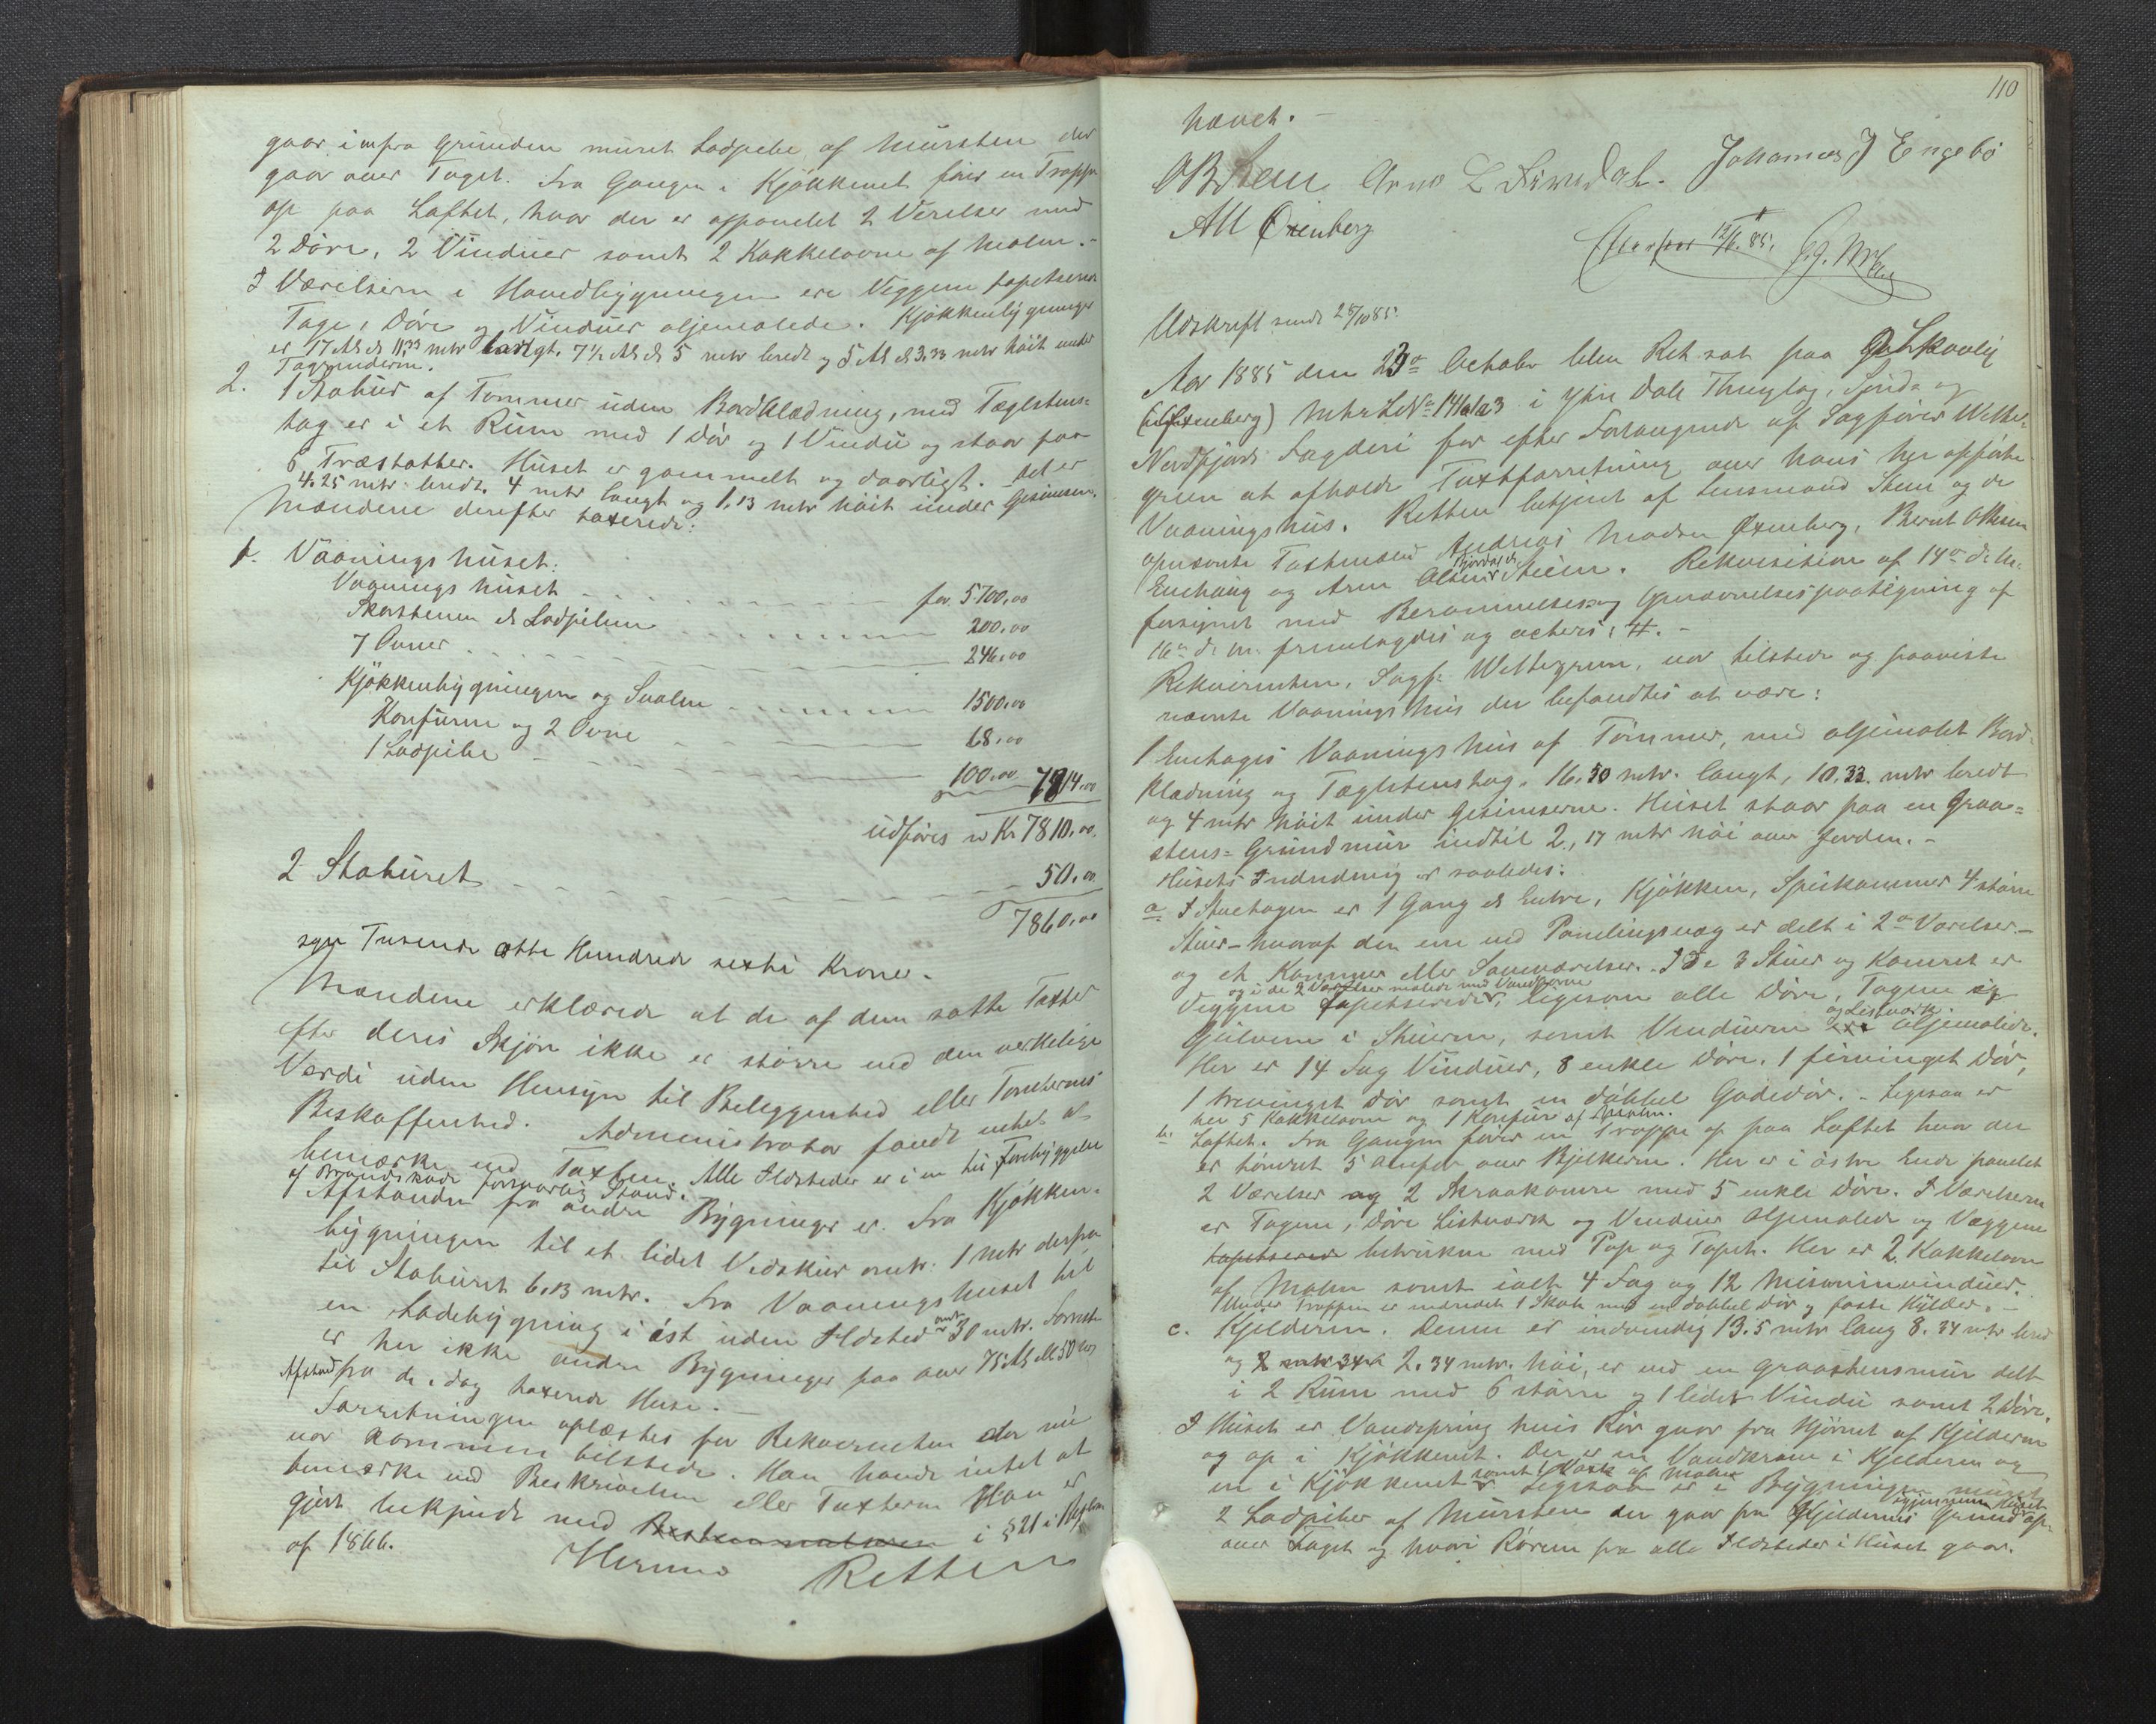 gaar innfra Grunden muret Ladpibe af Mursten der
gaar over Taget. Fra Gangen i Kjøkkenet fører en Trappe
op paa Loftet, hvor der er afpanelet 2 Verelser med
2 Døre, 2 Vinduer samt 2 Kakkelovne af Malm.-
I Værelserne i Hovedbygningen ere Veggene tapetserede
Tage, Døre og Vinduer oljemalede. Kjøkkenbygningen
er 17 Al. à 11.33 mtr langt. 7½ Al à 5 mtr bredt og 5 Al à 3.33 mtr høit under
Tagrenderne.
2. 1 Stabur af Tømmer uden Bordklædning, med Taglstens-
tag er i et Rum med 1 Dør og 1 Vindu og staar paa
6 Træstabber. Huset er gammelt og daarligt. Det er
4.25 mtr bredt, 4 mtr langt og 1,13 mtr høit under Gesimsen.
Mændene derefter taxerede:
1. Vaaningshuset:
Vaaningshuset for 5700,00
Skorstenen à Ladpiben 200,00
7 Ovner 246,00
Kjøkkenbygningen og Svalen 1500,00
Komfuren og 2 Ovne 68,00
1 Ladpibe 100,00 7814,00
udføres Kr 7810,00
2 Staburet 50,00
7860,00
syv Tusende otte Hundrede sexti Kroner.
Mændene erklærede at de af dem satte Taxter
efter deres Skjøn ikke er større end den verkelige
Verdi uden Hensyn til Beleggenhed eller Tomternes
Beskaffenhed. Administrator fandt intet at
bemærke ved Taxten. Alle Ildsteder er i en til Forebyggelse
af Brandskade forsvarlig Stand.
Afstanden fra andre Bygninger er. Fra Kjøkken-
bygningen til et lidet Vedskur omtr. 1 mtr derfra
til Staburet 6.13 mtr. Fra Vaaningshuset til
en Ladebygning i øst uden Ildsted omtr 30 mtr. Forresten
er her ikke andre Bygninger paa over 75 Al. el 50 mtr
Afstand fra de i dag taxerede Huse.-
Forretningen oplæstes for Rekvirenten der nu
var kommen tilstede. Han havde intet at
bemærke ved Beskrivelsen eller Taxterne Han er
gjort bekjendt med Bestemmelserne i § 21 i
af 1866.
Hermed Retten
110
hævet.-
OB Stein Johannes J Engebø
AM Øxenberg
Udskrift sendt 25/10 85.
Aar 1885 den 23de October blev Ret sat paa
(Øxenberg) Mtr L No 141a1a3 i Ytre Dale Thinglag, Sønd- og
Nordfjords Fogderi for efter Forlangende af Sagfører Wette-
green at afholde Taxtforretning over hans her opførte
Vaaningshus. Retten betjent af Lensmand Stein og de
opnævnte Taxtmænd Andreas Madsen Øxenberg, Bernt Olsen
og Arne Olsen Stein. Rekvisition af 14de d. M.
forsynet med Berammelses og Opnævnelsespaategning af
16de d. M. fremlagdes og acteres: #.-
Rekvirenten, Sagf: Wettegreen, var tilstede og paaviste
nævnte Vaaningshus der befandtes at være:
1 Enetages Vaaningshus af Tømmer, med oljemalet Bord-
klædning og Taglstenstag. 16.50 mtr. langt, 10.33. mtr bredt
og 4 mtr høit under Gesimserne. Huset staar paa en Graa-
stens-Grundmur indtil 2,17 mtr høi over Jorden.-
Husets Indredning er saaledes:
a I Stuetagen er 1 Gang à Entre, Kjøkken, Spiskammer 4 større
Stuer - hvoraf den ene ved Panelingsvæg er delt i 2de Værelser.-
og et Kammer eller Soveværelser. I de 3 Stuer og Kamret er
og i de 2 Værelser malede med Vandfarve
Veggene tapetserede, ligesom alle Døre, Tagene og
og Listværk
Gulvene i Stuerne, samt Vinduerne oljemalede.
Her er 14 Fag Vinduer, 8 enkle Døre, 1 firvinget Dør,
1 trevinget Dør samt en dobbel Gadedør.- Ligesaa er
her 5 Kakkelovne og 1 Komfur af Malm.
b. Loftet. Fra Gangen fører en Trappe op paa Loftet hvor der
er tømret 5 Omfar over Bjelkerne. Her er i østre Ende panelet
2 Værelser og 2 Skraakamre med 5 enkle Døre. I Værelserne
er Tagene, Døre Listværk og Vinduer Oljemalede og Væggene
tapetserede betrukne med Pap og Tapet. Her er 2 Kakkelovne
af Malm samt ialt 4 Fag og 12 Misaninvinduer.
Under Trappen er indredet 1 Skab med en dobbel Dør og faste Hylder.-
c. Kjelderen. Denne er indvendig 13.5 mtr lang 8.34 mtr bred
og 2 mtr 34 2.34 mtr. høi, er ved en Graastensmur delt
i 2 Rum med 6 større og 1 lidet Vindu samt 2 Døre.
I Huset er Vandspring hvis Rør gaar fra Hjørnet af Kjelderen
og op i Kjøkkenet. Der er en Vandkran i Kjelderen og
samt 1 Vask af Malm
en i Kjøkkenet Ligesaa er i Bygningen muret
igjennem Huset
2 Ladpiber af Mursten der gaar fra Kjelderens Grund op
over Taget og hvori Rørene fra alle Ildsteder i Huset gaar.